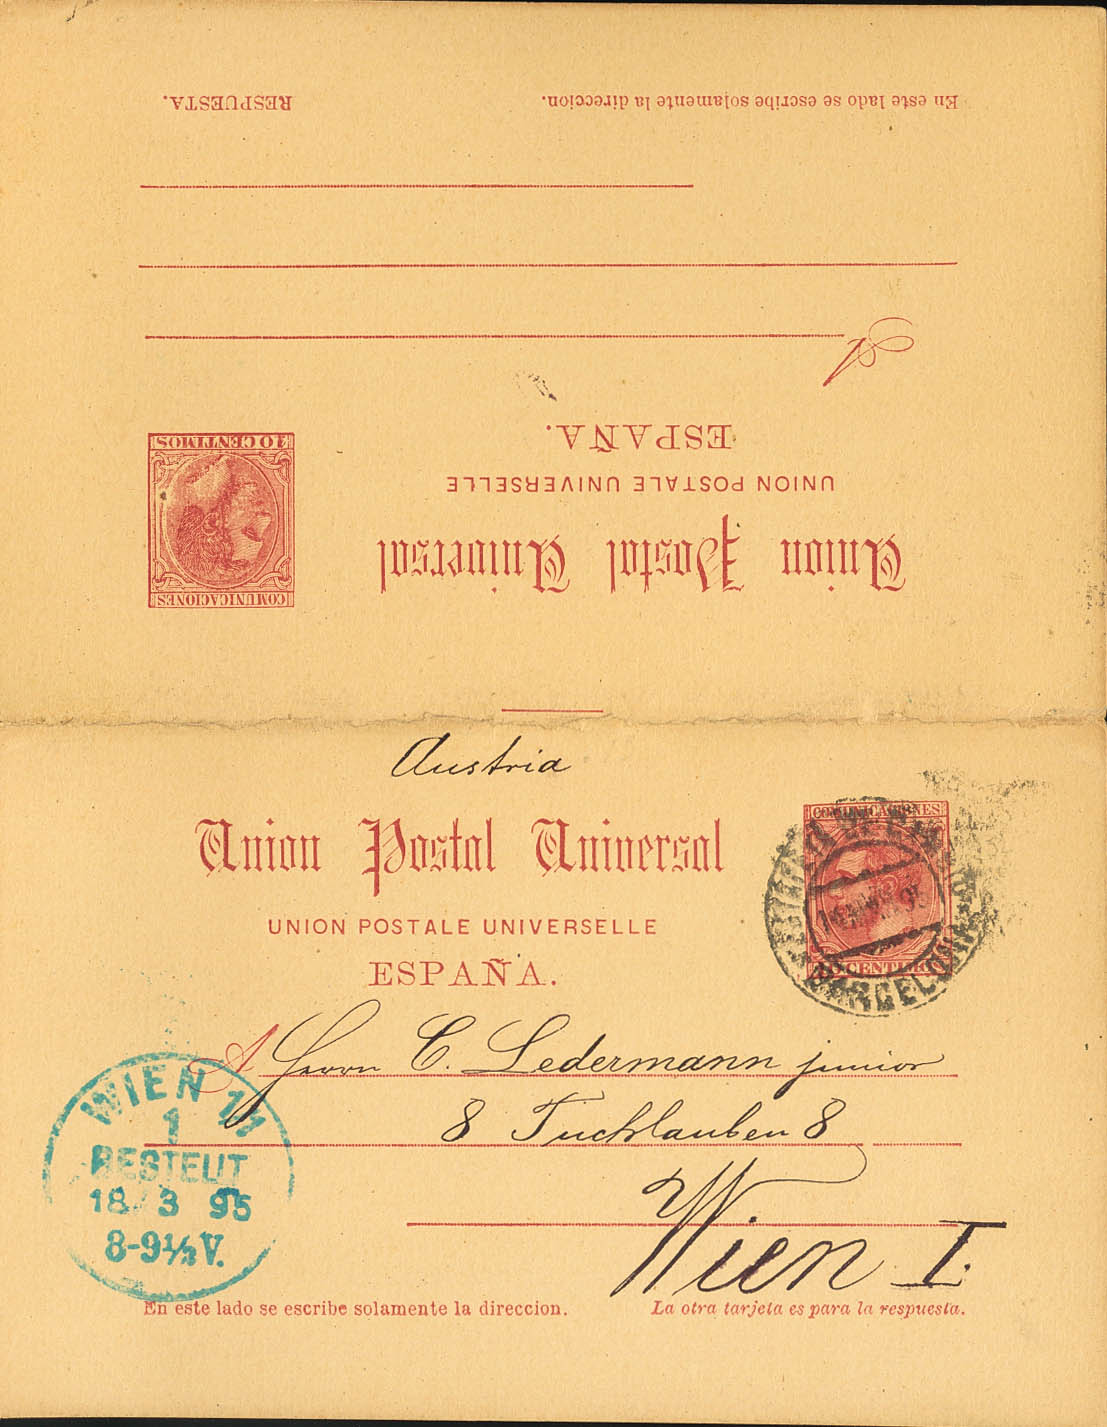 RESPUESTA.
En este lado se escribe solamente la direccion.
A
10 CENTIMOS
COMUNICACIONES
ESPAÑA.
UNION POSTALE UNIVERSELLE
Union Postal Universal
Austria
Union Postal Universal
UNION POSTALE UNIVERSELLE
ESPAÑA.
COMUNICACIONES
10 CENTIMOS
BARCELONA
95
A Herrn C. Ledermann junior
8 Tuchlauben 8
Wien I.
WIEN 1/1
1
BESTELLT
18/3 95
8-9½V.
En este lado se escribe solamente la direccion.
La otra tarjeta es para la respuesta.